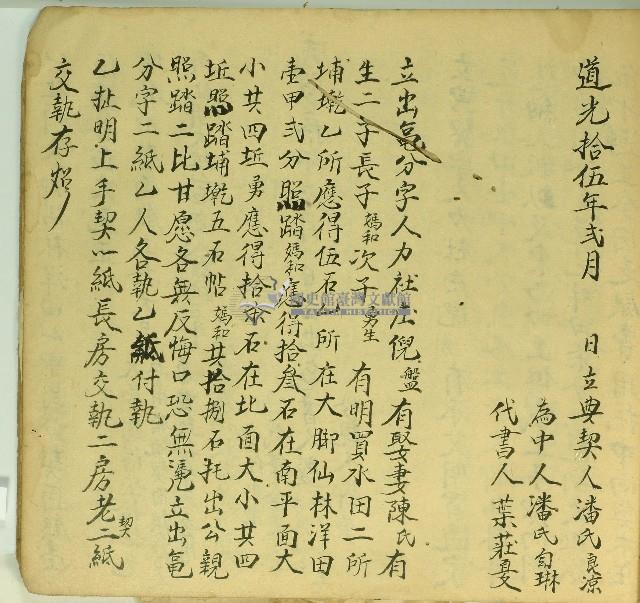 道光拾伍年弍月　日立典契人潘氏良凉
為中人潘氏自琳
代書人葉莊
立出鬮分字人力社庄倪盤有娶妻陳氏有
生二子長子媽和次子勇生　有明買水田二所
埔墘乙所應得伍石 所在大脚仙林洋田
壹甲弍分照踏媽和應得拾叁石在南平面大
小共四坵勇應得拾 石在北面大小共四
坵照踏埔墘五石帖媽和共拾捌石托出公親
照踏二比甘愿各無反悔口恐無 立出鬮
分字二紙乙人各執乙紙付執
乙批明上手契 紙長房交執二房老契二紙
交執存炤